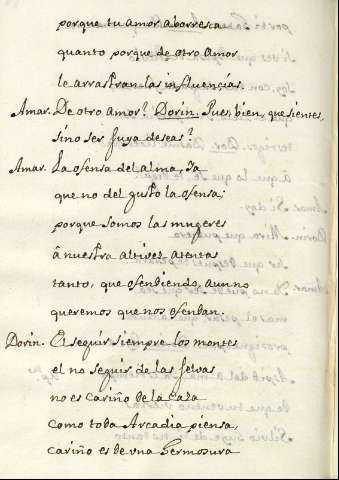 porque tu amor aborresca
quanto porque de otro Amor
le arrastran las influencias.
Amar. De otro amor? Dorin. Pues bien, que sientes,
sino ser suya deseas?
Amar. La ofensa del alma, ya
que no del gusto la ofensa;
porque somos las mugeres
â nuestra altivez atentas
tanto, que ofendiendo, aun no
queremos que nos ofendan.
Dorin. El seguir siempre los montes
el no seguir de las selvas
no es cariño de la caza
como toda Arcadia piensa,
cariño es de vna hermosura